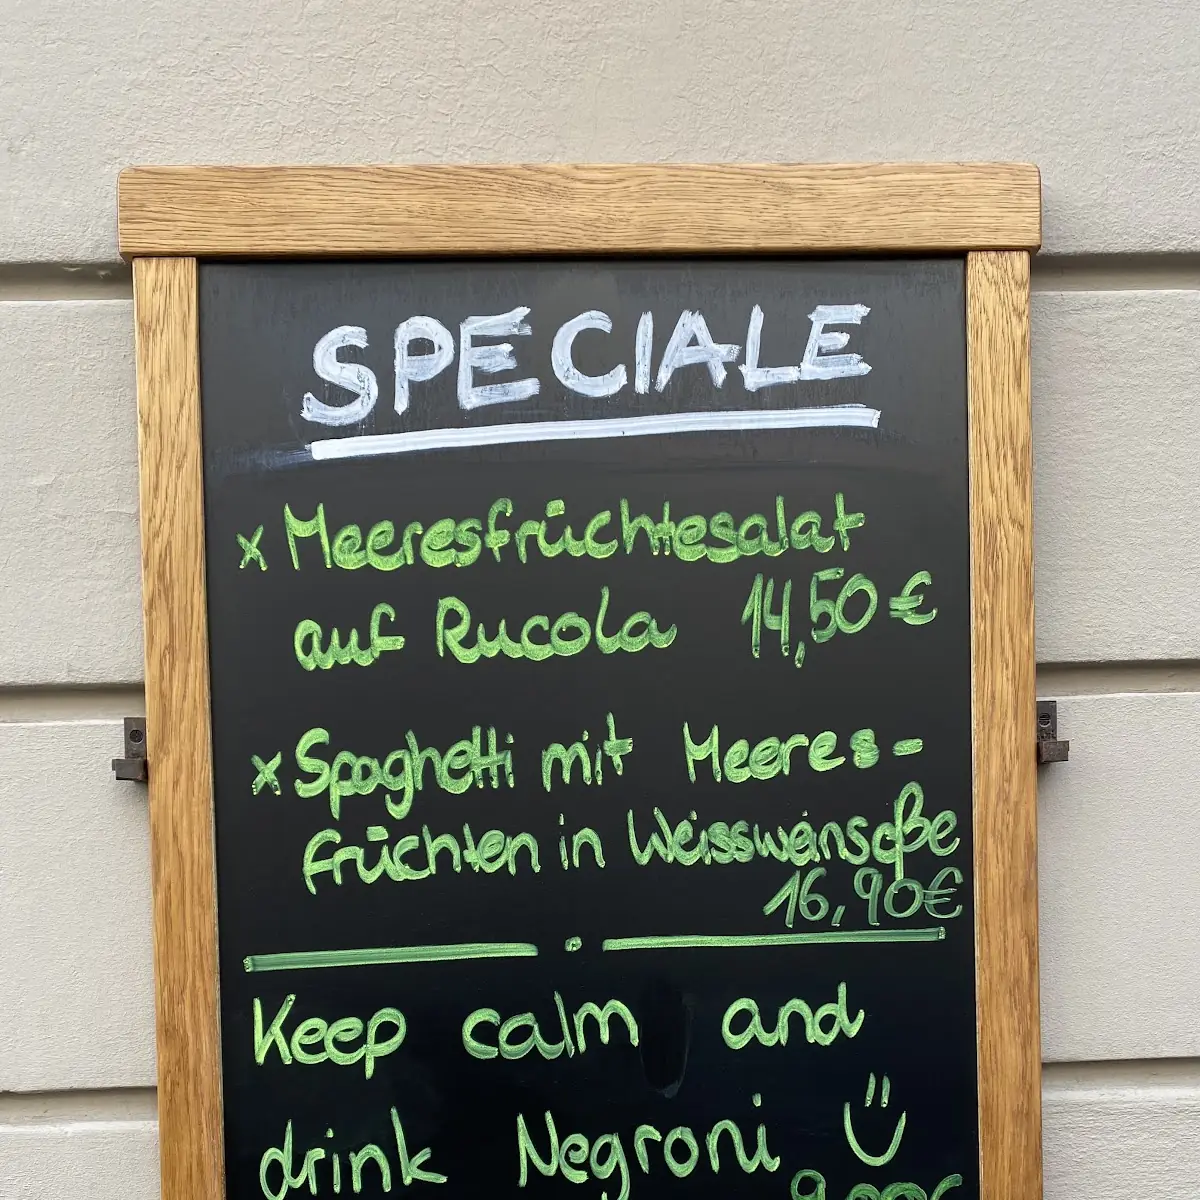 SPECIALE
x Meeresfrüchtesalat
auf Rucola 14,50 €
x Spaghetti mit Meeres-
früchten in Weissweinsoße
16,90€
Keep calm and
drink Negroni